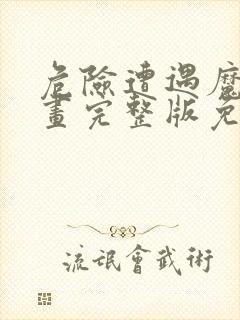 危險遭遇魔
畫完整版免
流氓會武術